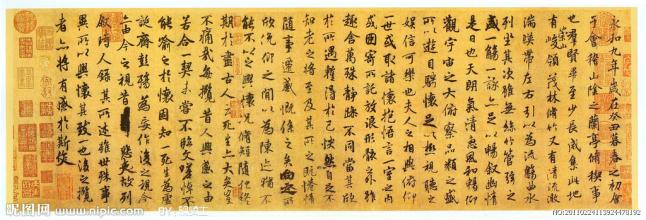 永和九年歲在癸丑暮春之初會
于會稽山陰之蘭亭脩稧事
也羣賢畢至少長咸集此地
有崇山峻領茂林脩竹又有清流激
湍暎帶左右引以為流觴曲水
列坐其次雖無絲竹管弦之
盛一觴一詠亦足以暢敘幽情
是日也天朗氣清惠風和暢仰
觀宇宙之大俯察品類之盛
所以遊目騁懷足以極視聽之
娛信可樂也夫人之相與俯仰
一世或取諸懷抱悟言一室之內
或因寄所託放浪形骸之外雖
趣舍萬殊靜躁不同當其欣
於所遇蹔得於己怏然自足不
知老之將至及其所之既惓情
隨事遷感慨係之矣向之所
欣俛仰之閒以為陳迹猶不
能不以之興懷況脩短隨化終
期於盡古人云死生亦大矣豈
不痛哉每攬昔人興感之由
若合一契未嘗不臨文嗟悼不
能喻之於懷固知一死生為虛
誕齊彭殤為妄作後之視今
亦由今之視昔悲夫故列
敘時人錄其所述雖世殊事
異所以興懷其致一也後之攬
者亦將有感於斯文
www.nipic.com
NO:20110224113924478192